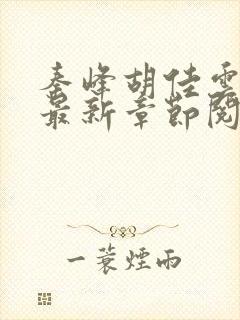 秦峰胡佳雲
最新章節閱
一蓑煙雨